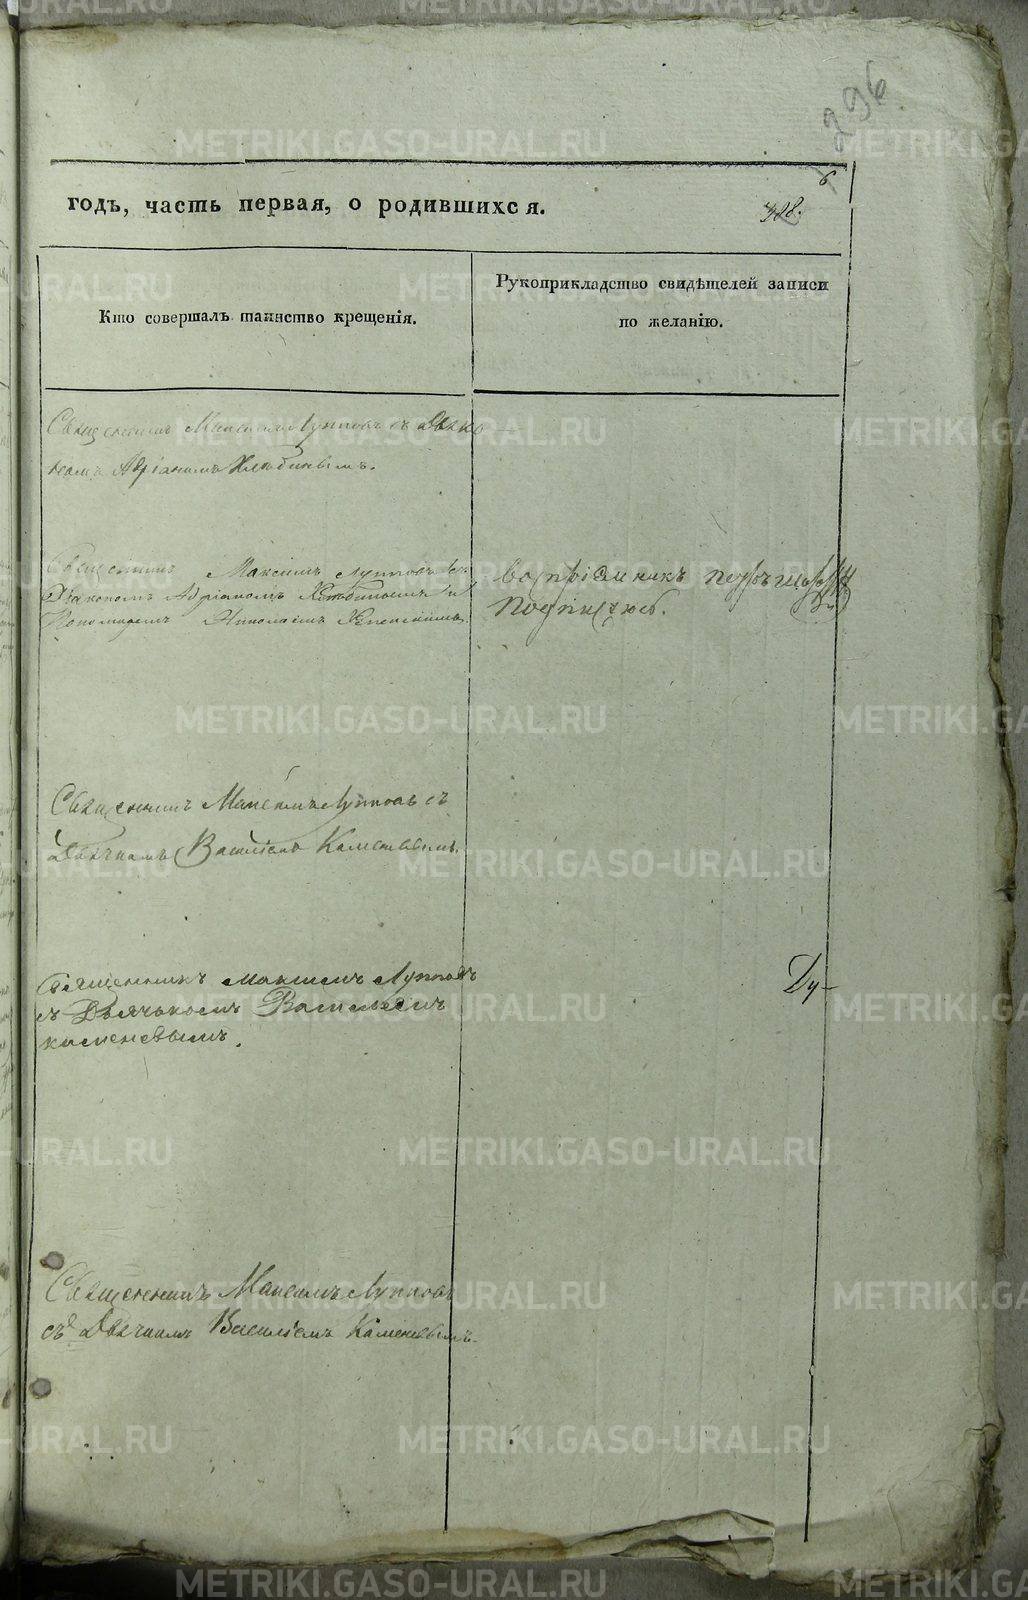 296
6
годъ, часть первая, о родившихся.
328.
Кто совершалъ таинство крещенія.
Рукоприкладство свидѣтелей записи
по желанію.
Священникъ Максимъ Лупповъ съ
Адріаномъ Хлѣбинымъ.
Священникъ Максимъ Лупповъ съ
Діакономъ Адріаномъ Хлѣбинымъ и
Пономаремъ Николаемъ
воспріемникъ
Подписуюсь.
Священникъ Максимъ Лупповъ съ
Дьячкомъ Василіемъ Каменевымъ.
Священникъ Максимъ Лупповъ
съ Дьячкомъ Васильемъ
каменевымъ.
Ду-
Священникъ Максимъ Лупповъ
съ Дьячкомъ Василіемъ Каменевымъ.
METRIKI.GASO-URAL.RU